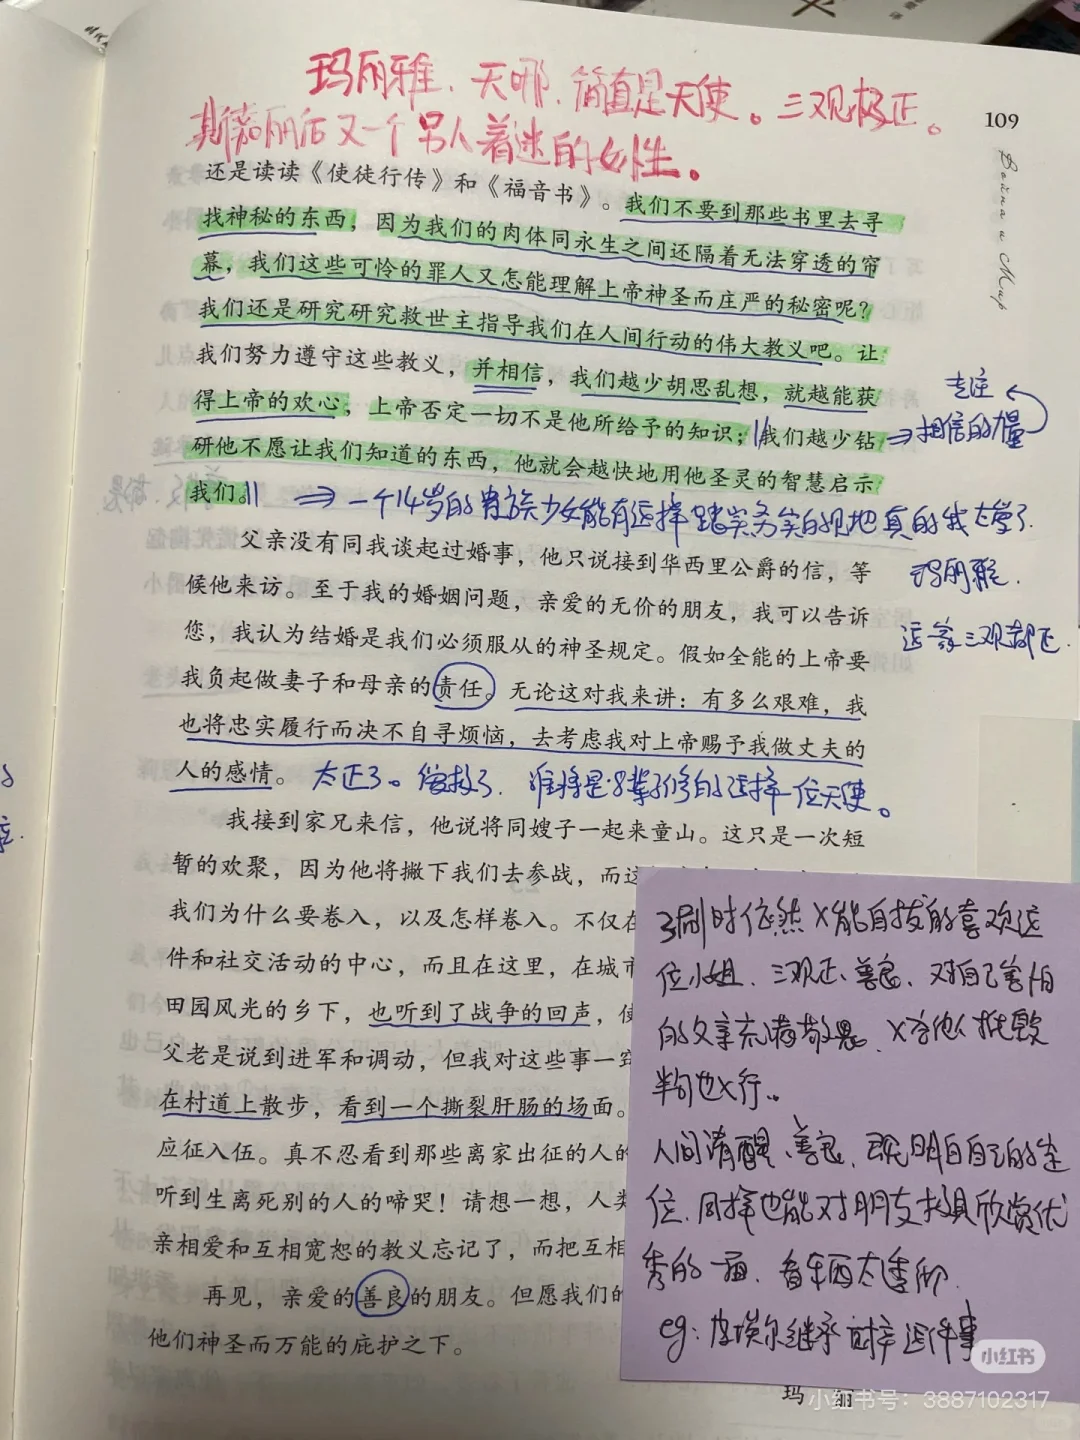 玛丽雅、天哪、简直是天使。三观极正。
斯嘉丽后又一个另人着迷的女性。
109
Война и Мир
还是读读《使徒行传》和《福音书》。我们不要到那些书里去寻
找神秘的东西，因为我们的肉体同永生之间还隔着无法穿透的帘
幕，我们这些可怜的罪人又怎能理解上帝神圣而庄严的秘密呢？
我们还是研究研究救世主指导我们在人间行动的伟大教义吧。让
我们努力遵守这些教义，并相信，我们越少胡思乱想，就越能获
得上帝的欢心，上帝否定一切不是他所给予的知识；我们越少钻
专注
⇒相信的力量
研他不愿让我们知道的东西，他就会越快地用他圣灵的智慧启示
我们。
⇒一个14岁的贵族少女能有这样踏实务实的见地真的我太学了.
玛丽雅.
父亲没有同我谈起过婚事，他只说接到华西里公爵的信，等
候他来访。至于我的婚姻问题，亲爱的无价的朋友，我可以告诉
您，我认为结婚是我们必须服从的神圣规定。假如全能的上帝要
三观都正.
我负起做妻子和母亲的责任。无论这对我来讲：有多么艰难，我
也将忠实履行而决不自寻烦恼，去考虑我对上帝赐予我做丈夫的
人的感情。
太正了。 谁将是8辈子修的这样一位天使。
我接到家兄来信，他说将同嫂子一起来童山。这只是一次短
暂的欢聚，因为他将撇下我们去参战，而这
我们为什么要卷入，以及怎样卷入。不仅在
件和社交活动的中心，而且在这里，在城市
田园风光的乡下，也听到了战争的回声，使
父老是说到进军和调动，但我对这些事一窍
在村道上散步，看到一个撕裂肝肠的场面。
应征入伍。真不忍看到那些离家出征的人的
听到生离死别的人的啼哭！请想一想，人类
亲相爱和互相宽恕的教义忘记了，而把互相
再见，亲爱的善良的朋友。但愿我们的
他们神圣而万能的庇护之下。
玛 丽
3刷时依然X能自拔的喜欢这
位小姐、三观正、善良、对自己害怕
的父亲充满敬畏、X容他人批毁
半句也X行..
人间清醒、善良、既明白自己的定
位、同样也能对朋友报以欣赏优
秀的一面、看东西太透彻.
eg:皮埃尔继承财产这件事
小红书
小红书号：3887102317